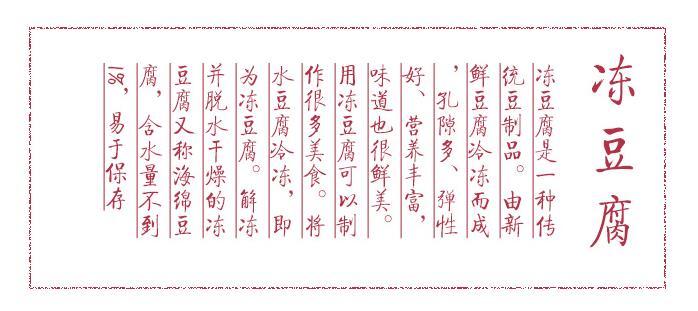 冻豆腐
冻豆腐是一种传
统豆制品。由新
鲜豆腐冷冻而成
，孔隙多、弹性
好、营养丰富，
味道也很鲜美。
用冻豆腐可以制
作很多美食。将
水豆腐冷冻，即
为冻豆腐。解冻
并脱水干燥的冻
豆腐又称海绵豆
腐，含水量不到
，易于保存